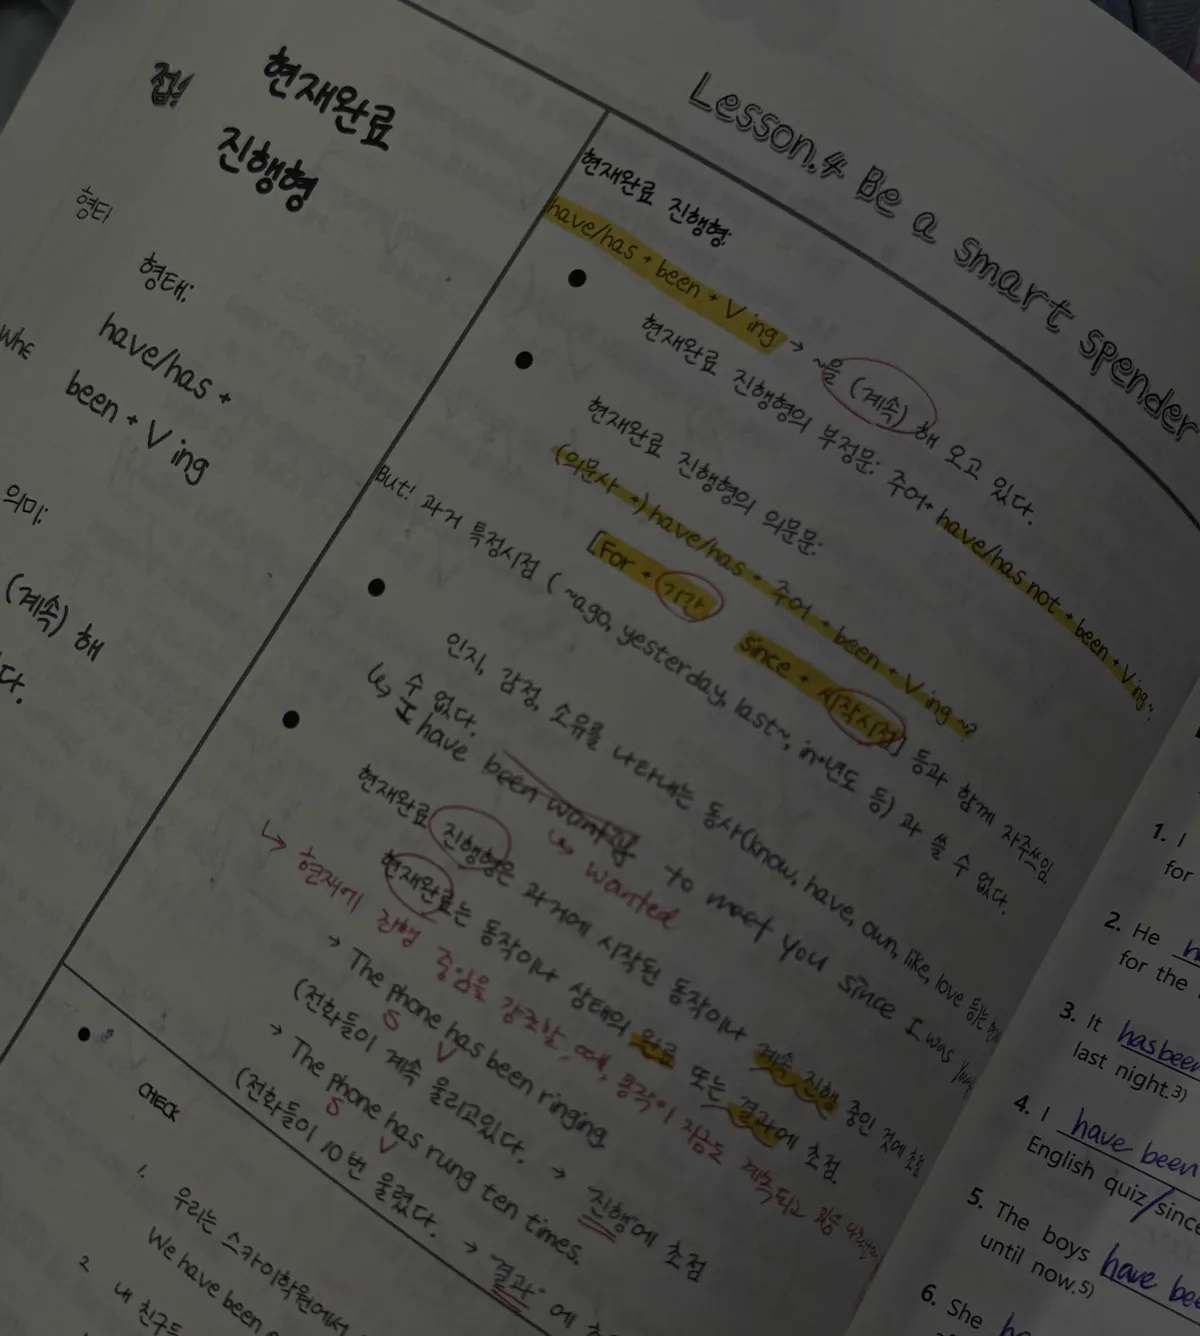 Lesson.4 Be a smart spender
현재완료
진행형
형태:
have/has +
been + V ing
의미:
(계속) 해
다.
현재완료 진행형:
have/has + been + V ing → ~을 (계속) 해 오고 있다.
현재완료 진행형의 부정문: 주어+ have/has not + been + V ing~.
현재완료 진행형의 의문문:
(의문사 +) have/has + 주어 + been + V ing ~?
[For + 기간 since + 시작시점] 등과 함께 자주쓰임.
But! 과거 특정시점 ( ~ago, yesterday, last~, in+년도 등) 과 쓸 수 없다.
인지, 감정, 소유를 나타내는 동사(know, have, own, like, love 등)는
수 없다.
↳ I have been wanting to meet you since I was
↳ wanted
현재완료 진행형은 과거에 시작된 동작이나 계속 진행 중인 것에 초점
현재완료는 동작이나 상태의 완료 또는 결과에 초점
↳ 현재에 진행 중임을 강조할 때, 동작이 지금도 계속되고
→ The phone has been ringing
S V
(전화들이 계속 울리고있다. → 진행에 초점
→ The phone has rung ten times.
S V
(전화들이 10번 울렸다. → "결과" 에
CHECK
1. 우리는 스카이학원에서
We have been
2 내 친구
1. I
for
2. He
for the
3. It has been
last night.3)
4. I have been
English quiz/since
5. The boys have bee
until now.5)
6. She